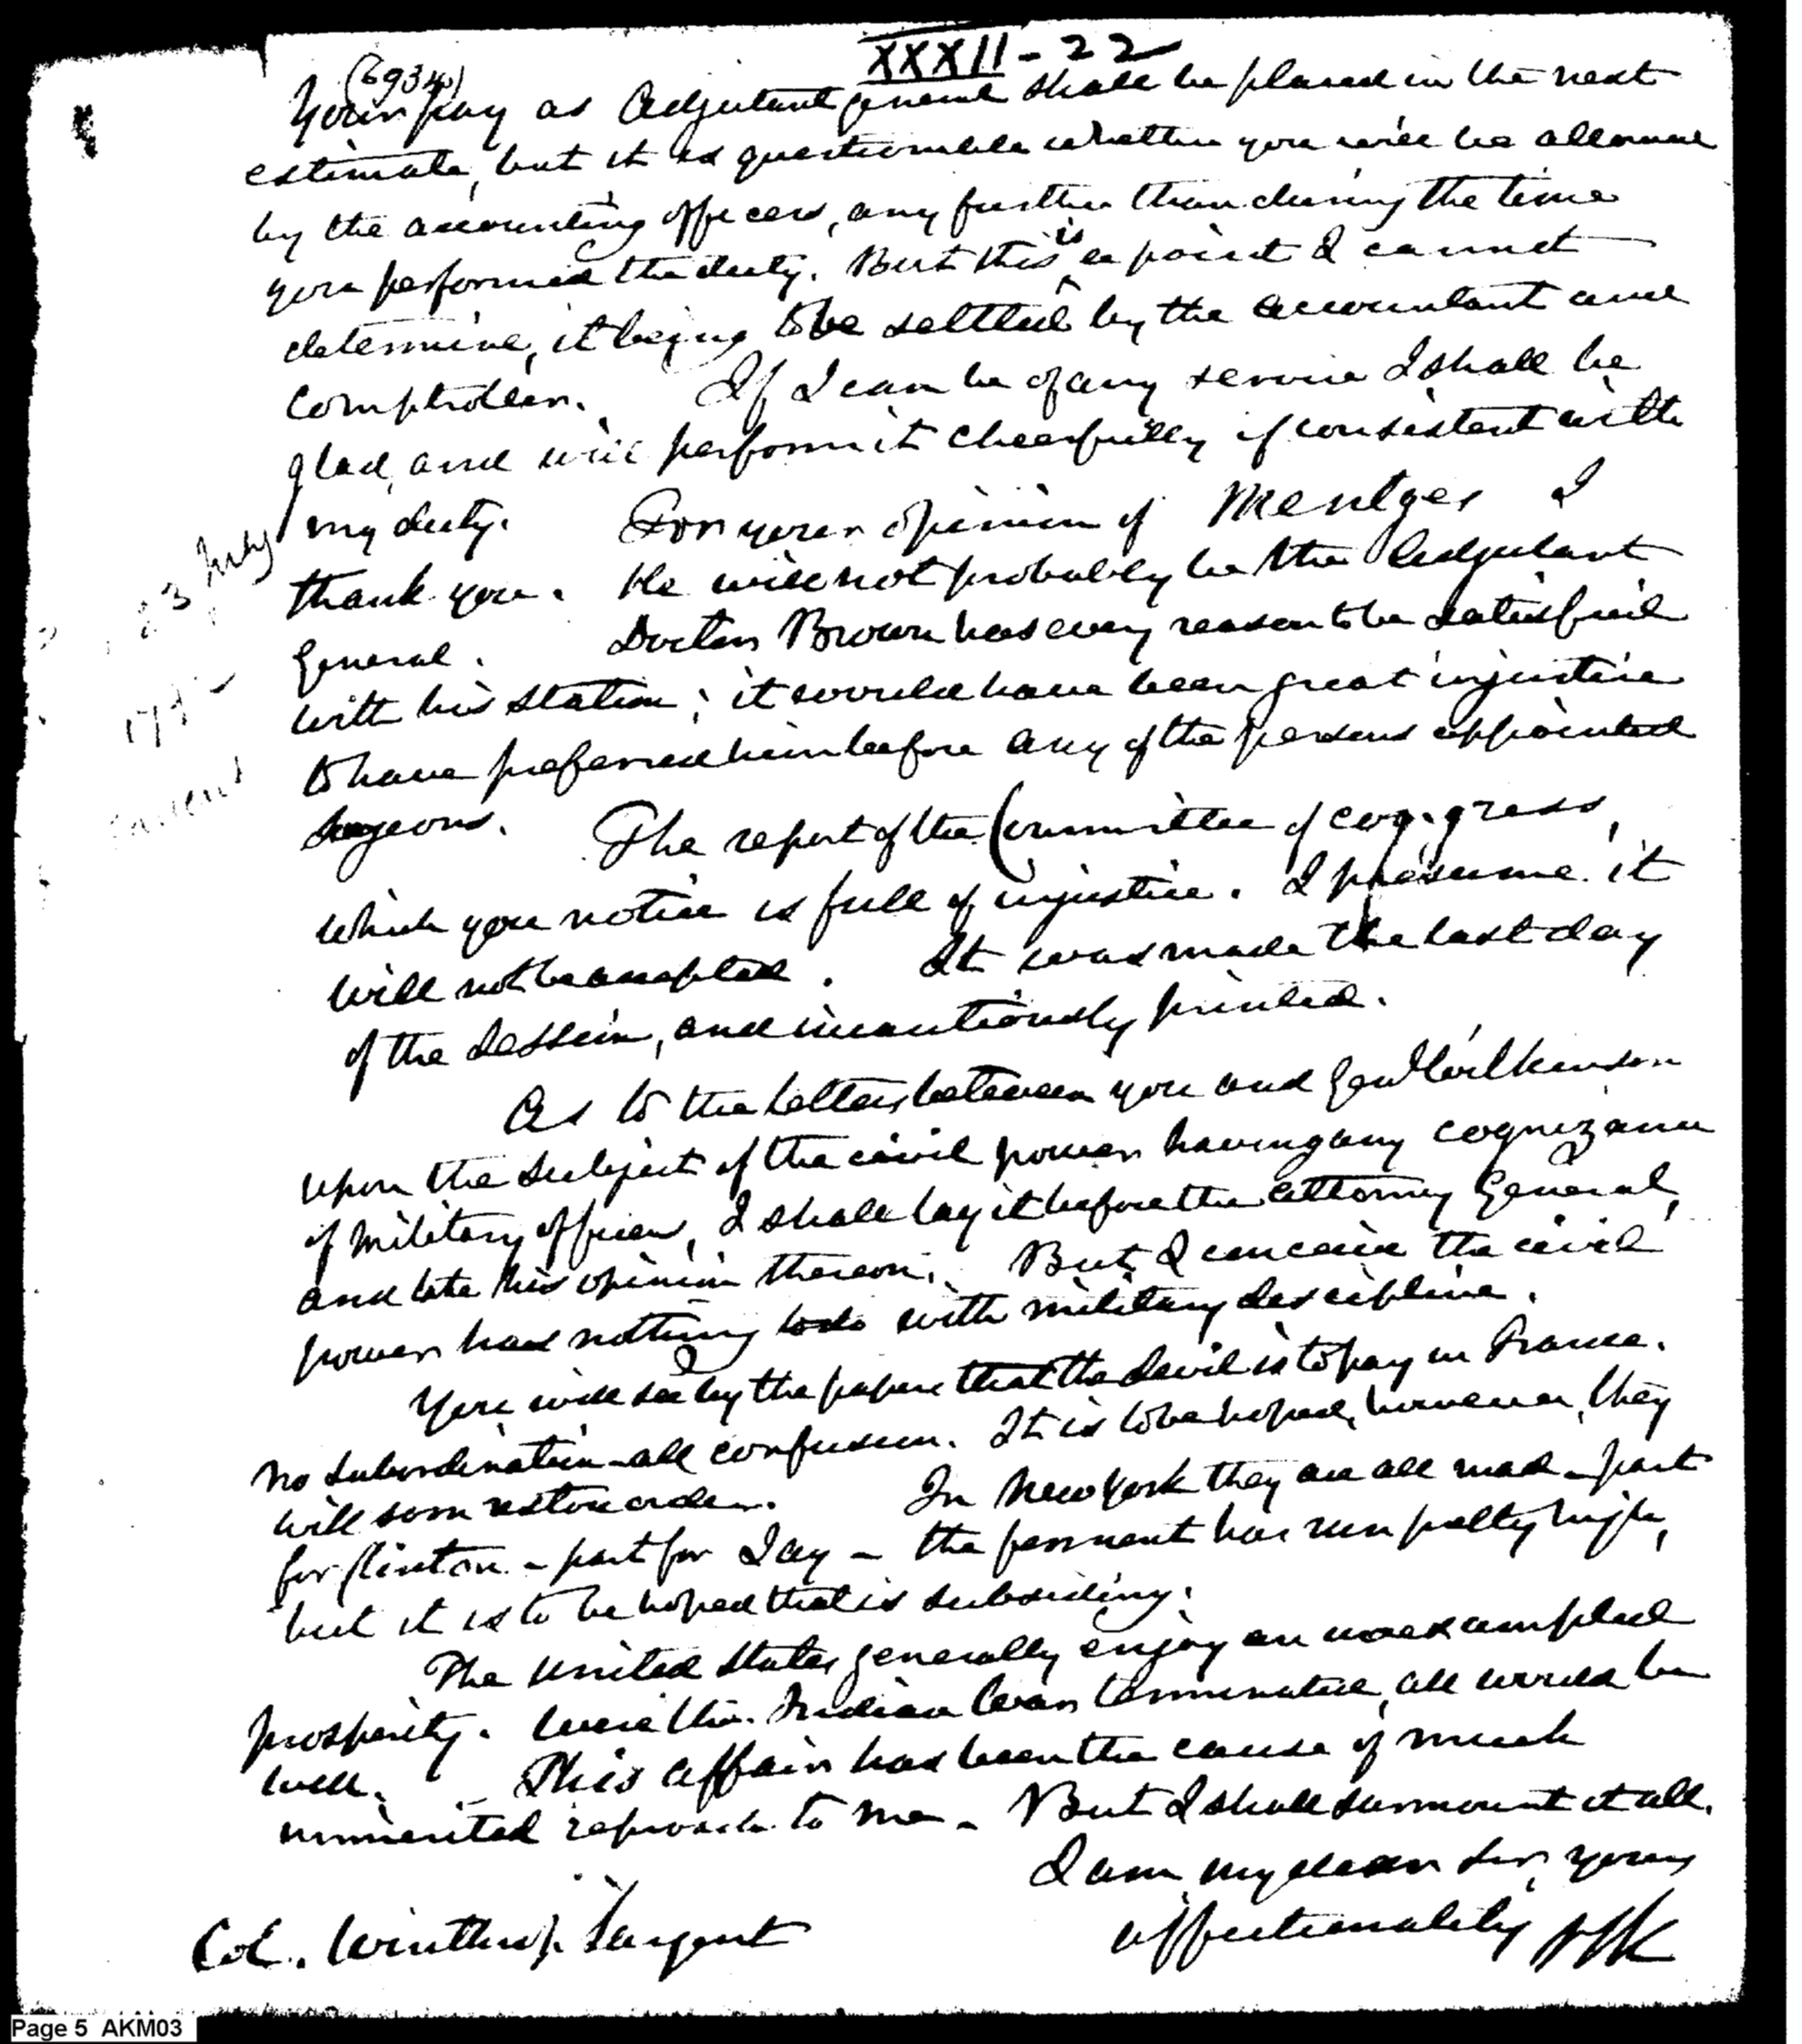 XXXII-22
(6934)
Your pay as Adjutant general shall be placed in the next
estimate, but it is questionable whether you will be allowed
by the accounting officers, any further than during the time
you performed the duty. But this is a point I cannot
determine, it being to be settled by the accountant and
Comptroller. If I can be of any service I shall be
glad, and will perform it cheerfully if consistent with
my duty. For your opinion of Mentges I
thank you. He will not probably be the Adjutant
General. Doctor Brown has every reason to be satisfied
with his station; it would have been great injustice
to have preferred him before any of the persons appointed
Surgeons. The report of the Committee of congress,
which you notice is full of injustice. I presume it
will not be accepted. It was made the last day
of the Session, and incautiously printed.
As to the letters between you and Genl Wilkinson
upon the subject of the civil power having any cognizance
of military officers, I shall lay it before the Attorney General,
and take his opinion thereon. But I conceive the civil
power has nothing to do with military descipline.
You will see by the papers that the devil is to pay in France.
No subordination - all confusion. It is to be hoped, however, they
will soon restore order. In New York they are all mad - part
for Clinton - part for Jay - the ferment has run pretty high,
but it is to be hoped that is subsiding.
The United States generally enjoy an unexampled
prosperity. Were the Indian War terminated, all would be
well. This affair has been the cause of much
unmerited reproach to me. But I shall surmount it all.
I am my dear sir, yours
affectionately HK
Col. Winthrop Sargent
23 July
Page 5 AKM03